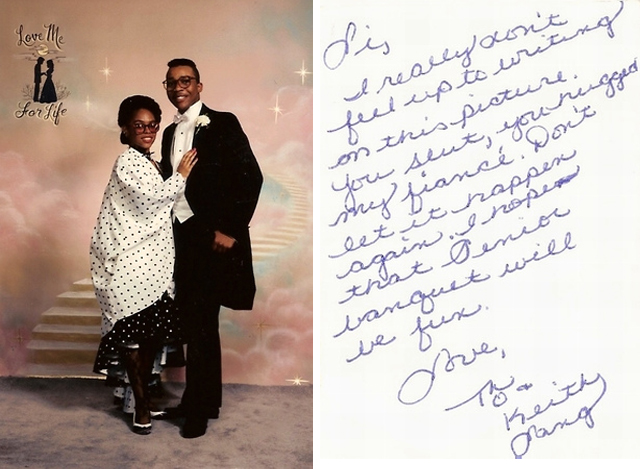 Love Me
For Life
Sis
I really don't
feel up to writing
on this picture.
You slut, you hugged
my fiancé. Don't
let it happen
again. I hope
that Senior
banquet will
be fun.
Love,
Keith